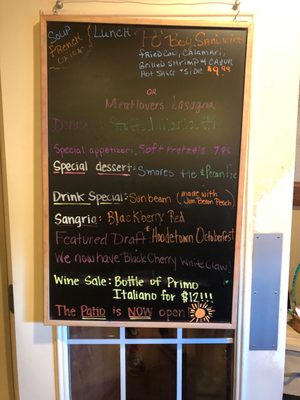 Soup
French
Lunch
Po' Boy Sandwich
Fried Cod, Calamari,
Grilled Shrimp & Cajun
Hot Sauce + Side $9.99
OR
Meatlovers Lasagna
Special appetizer: Soft Pretzels 7.95
Special dessert: Smores Pie & Pecan Pie
Drink Special: Sunbeam (made with Jim Beam Peach)
Sangria: Blackberry Red
Featured Draft: Hoodetown Octoberfest
We now have "Black Cherry White Claw"
Wine Sale: Bottle of Primo
Italiano for $12!!!
The Patio is NOW open